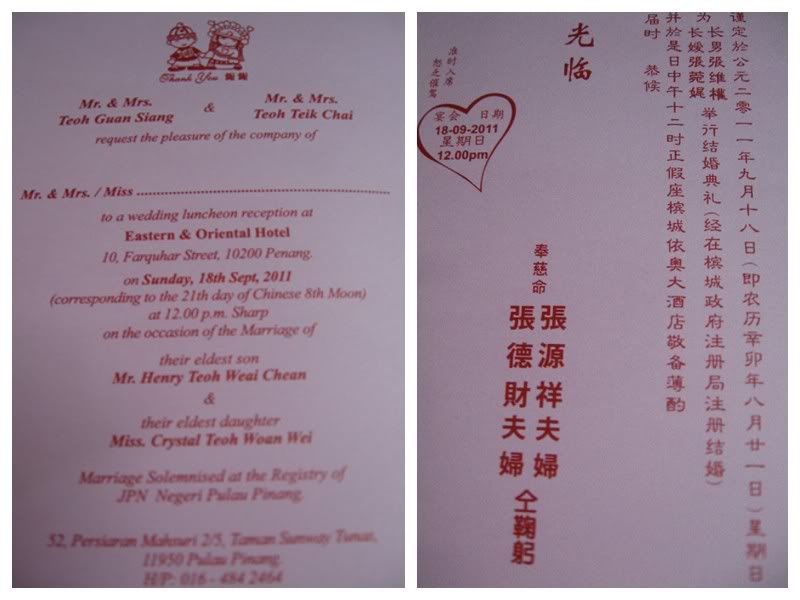 Thank You
Mr. & Mrs.
Teoh Guan Siang
&
Mr. & Mrs.
Teoh Teik Chai
request the pleasure of the company of
Mr. & Mrs. / Miss ..................................................................
to a wedding luncheon reception at
Eastern & Oriental Hotel
10, Farquhar Street, 10200 Penang.
on Sunday, 18th Sept, 2011
(corresponding to the 21th day of Chinese 8th Moon)
at 12.00 p.m. Sharp
on the occasion of the Marriage of
their eldest son
Mr. Henry Teoh Weai Chean
&
their eldest daughter
Miss. Crystal Teoh Woan Wei
Marriage Solemnised at the Registry of
JPN Negeri Pulau Pinang.
52, Persiaran Mahsuri 2/5, Taman Sunway Tunas,
11950 Pulau Pinang.
H/P: 016 - 484 2464
谨定於公元二零一一年九月十八日(即农历辛卯年八月廿一日)星期日
为长男張维權
长嫒張菀娓
举行结婚典礼(经在槟城政府注册局注册结婚)
并於是日中午十二时正假座槟城依奥大酒店敬备薄酌
届时 恭候
光临
准时入席
恕乏催驾
宴会 日期
18-09-2011
星期日
12.00pm
奉慈命
張源祥夫婦
張德財夫婦
仝鞠躬